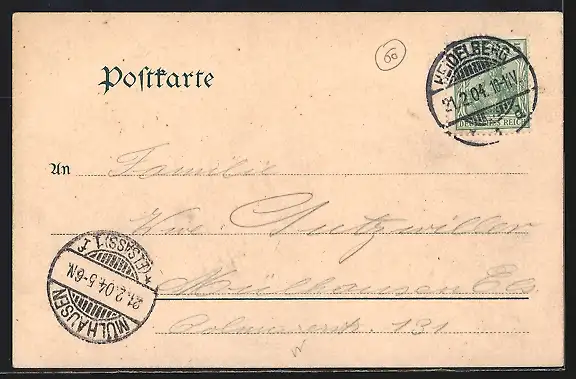 06
HEIDELBERG
21.2.04.10-11V
DEUTSCHES REICH
Postkarte
An Familie
Wwe. Gutzwiller
Mülhausen Els
Colmarerstr. 131
MÜLHAUSEN
21.2.04.5-6N.
(ELSASS) 1